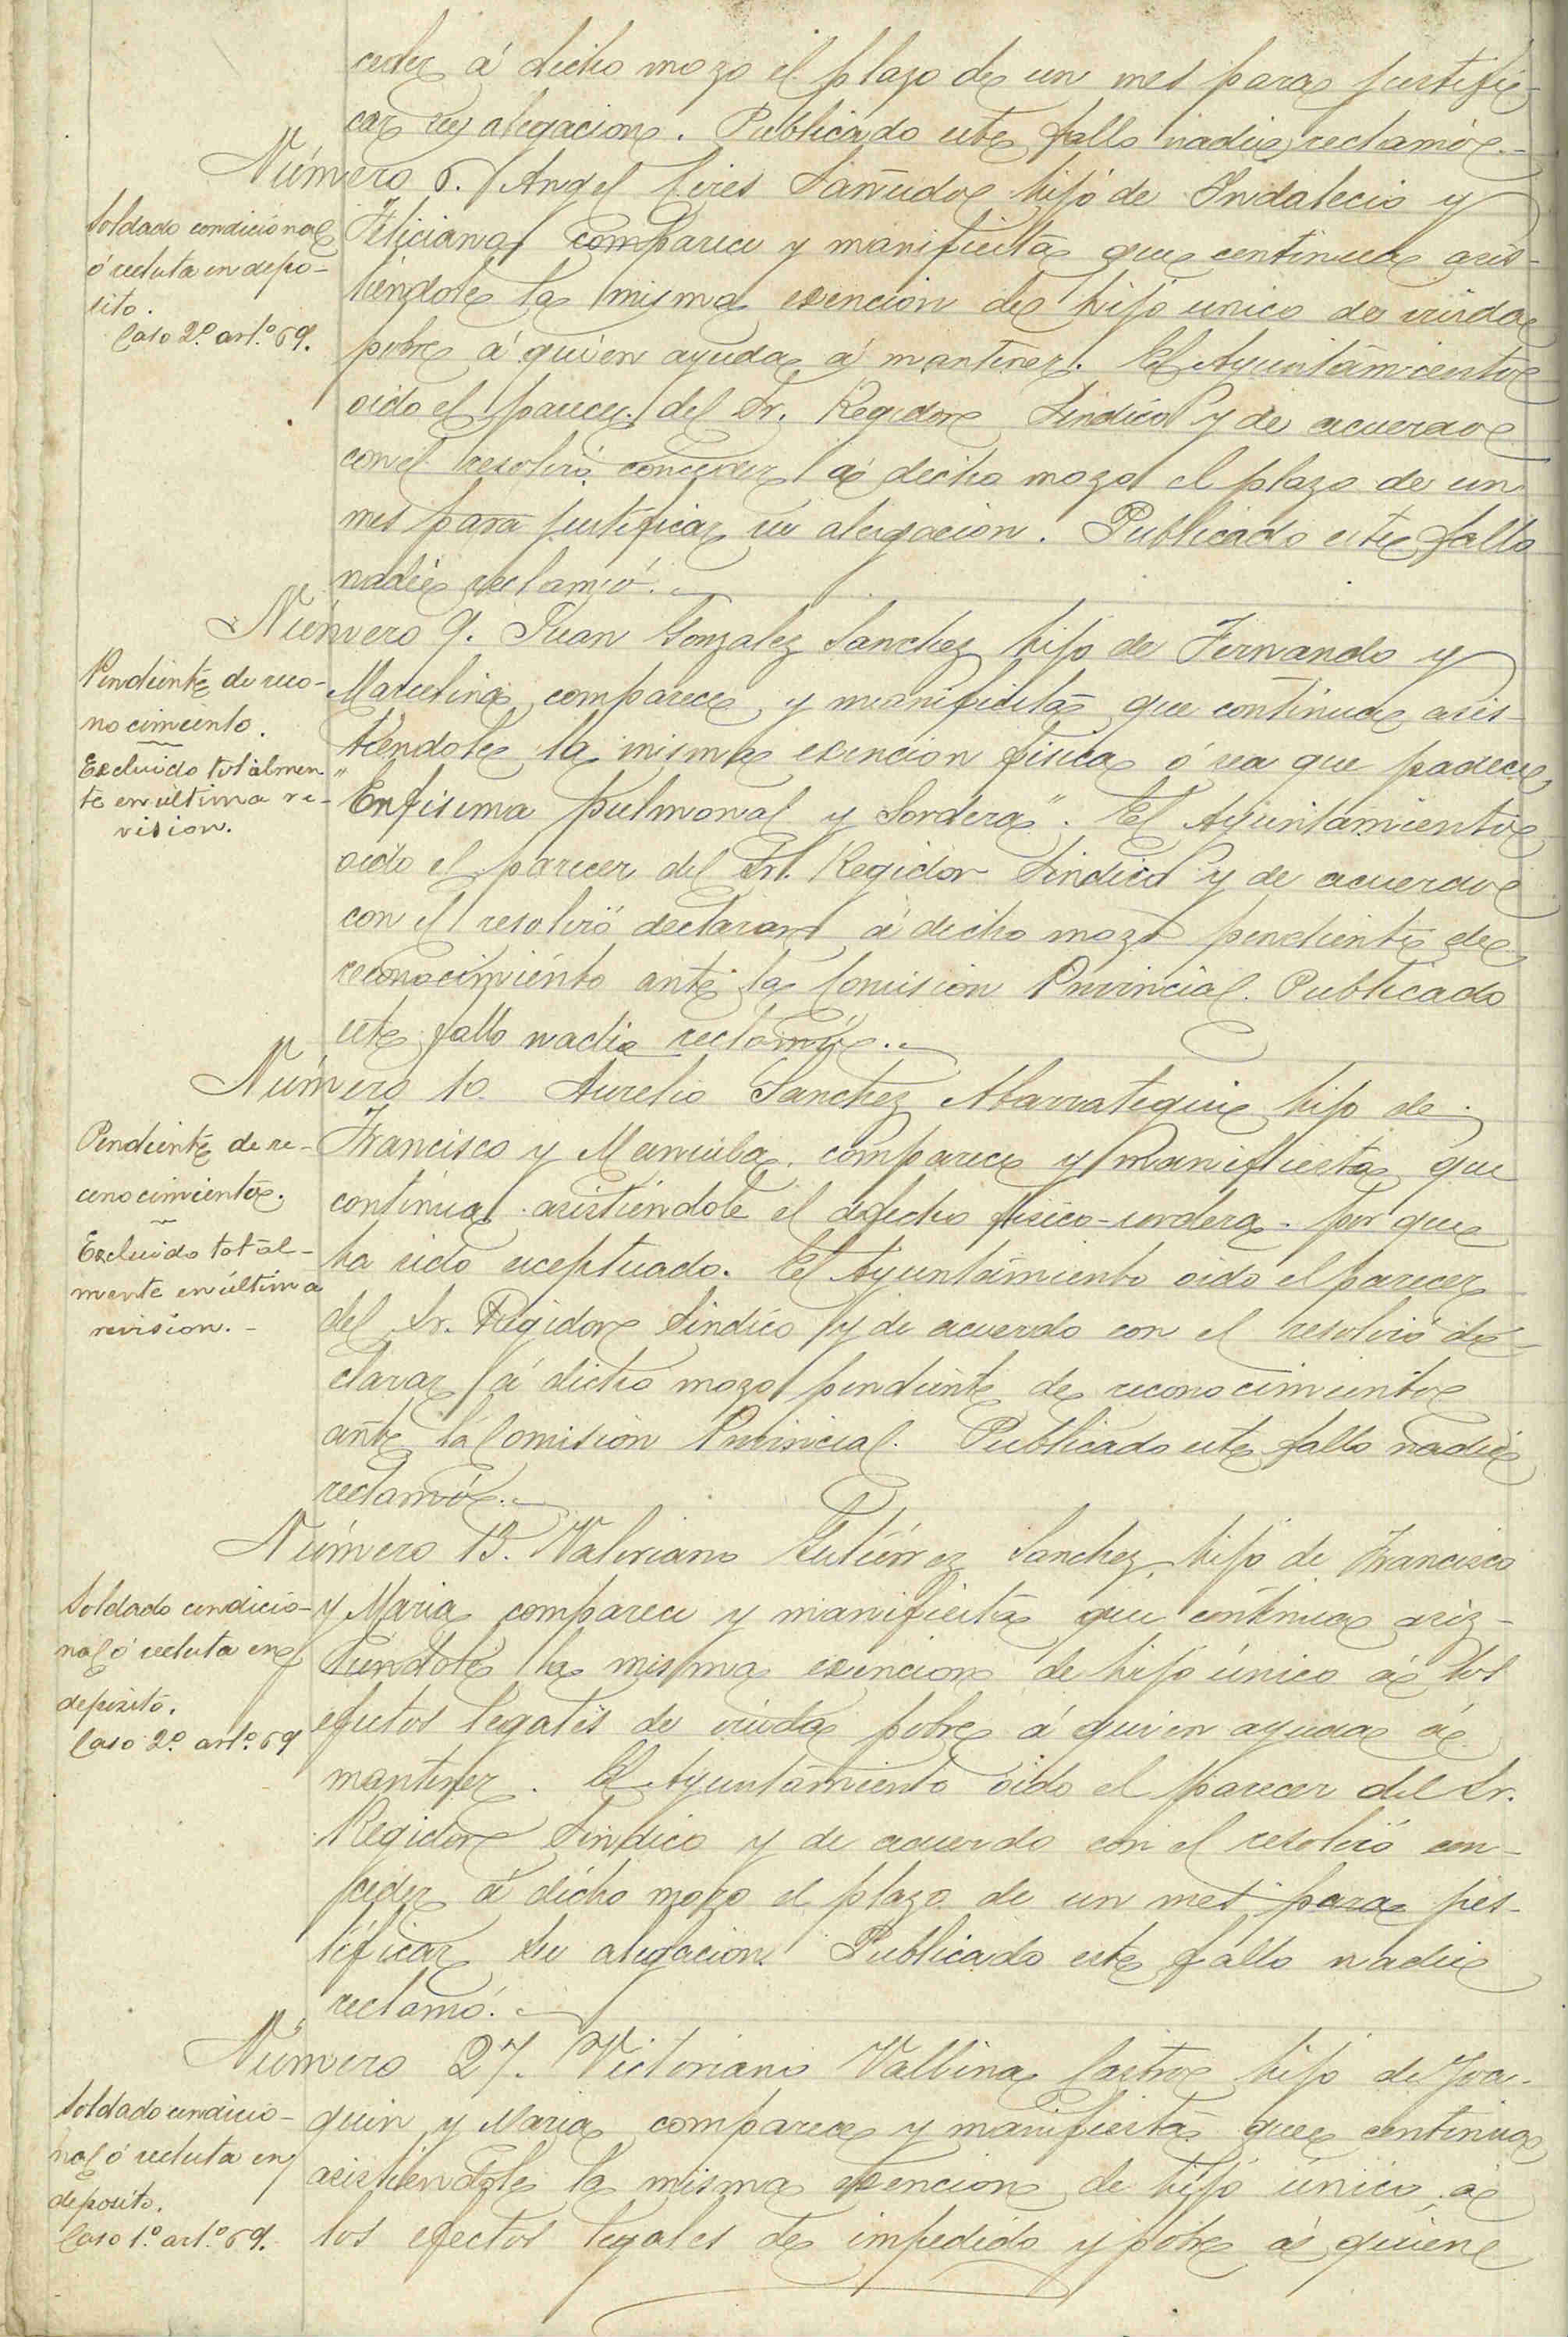 ceder á dicho mozo el plazo de un mes para justifi-
car su alegacion. Publicado este fallo nadie reclamó.-
Número 6. Angel Cires Sañudo hijo de Indalecio y
Soldado condicional
ó recluta en depo-
sito.
Caso 2.º art.º 69.
Feliciana comparece y manifiesta que continua asis-
tiéndole la misma exencion de hijo unico de viuda
pobre á quien ayuda á mantener. El Ayuntamiento
oido el parecer del Sr. Regidor Sindico y de acuerdo
con el resolvió conceder á dicho mozo el plazo de un
mes para justificar su alegacion. Publicado este fallo
nadie reclamó.
Número 9. Juan Gonzalez Sanchez hijo de Fernando y
Pendiente de reco-
nocimiento.
Excluido totalmen-
te en última re-
vision.
Marcelina comparece y manifiesta que continua asis-
tiéndole la misma exencion fisica ó sea que padece
"Enfisema pulmonal y Sordera". El Ayuntamiento
oido el parecer del Sr. Regidor Sindico y de acuerdo
con el resolvió declarar á dicho mozo pendiente de
reconocimiento ante la Comision Provincial. Publicado
este fallo nadie reclamó.
Número 10. Aurelio Sanchez Abarrategui hijo de
Pendiente de re-
conocimiento.
Excluido total-
mente en última
revision.-
Francisco y Manuela comparece y manifiesta que
continua asistiéndole el defecto fisico-sordera- por que
ha sido exceptuado. El Ayuntamiento oido el parecer
del Sr. Regidor Sindico y de acuerdo con el resolvió de-
clarar á dicho mozo pendiente de reconocimiento
ante la Comision Provincial. Publicado este fallo nadie
reclamó.
Número 13. Valeriano Gutiérrez Sanchez, hijo de Francisco
Soldado condicio-
nal ó recluta en
deposito.
Caso 2.º art.º 69
y Maria comparece y manifiesta que continua asiz-
tiéndole la misma exencion de hijo único á los
efectos legales de viuda pobre á quien ayuda á
mantener. El Ayuntamiento oido el parecer del Sr.
Regidor Sindico y de acuerdo con el resolvió con-
ceder á dicho mozo el plazo de un mes para jus-
tificar su alegacion. Publicado este fallo nadie
reclamó.
Número 27. Victoriano Vallina Castro hijo de Joa-
Soldado condicio-
nal ó recluta en
deposito.
Caso 1.º art.º 69.
quin y Maria comparece y manifiesta que continua
asistiendole la misma exencion de hijo único á
los efectos legales de impedido y pobre á quien